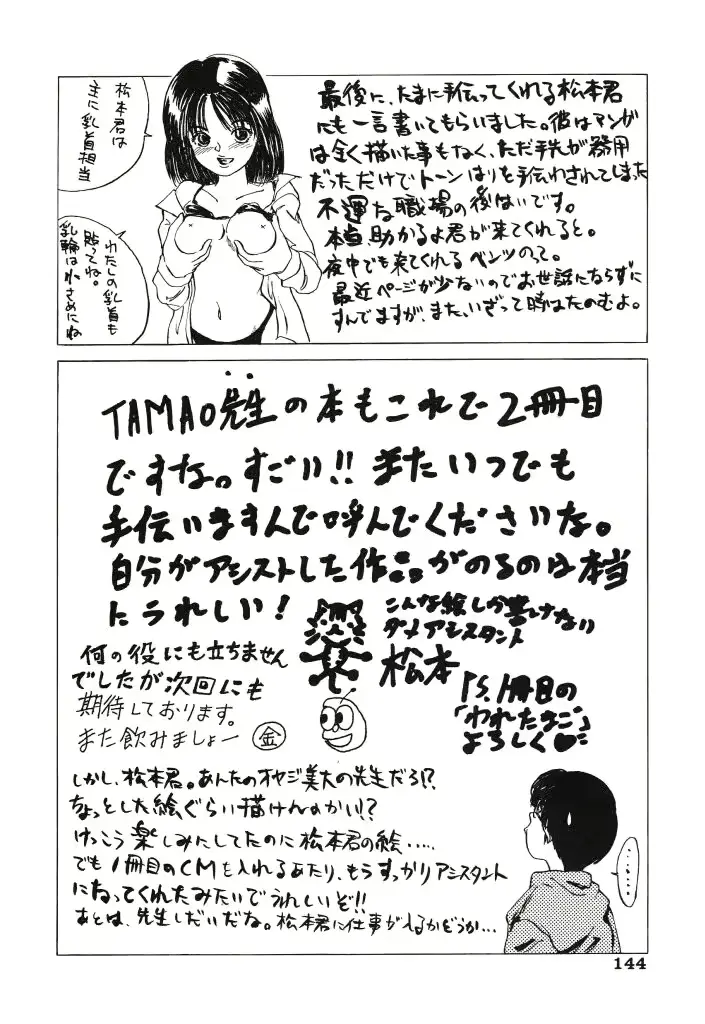 最後に、たまに手伝ってくれる松本君
にも一言書いてもらいました。彼はマンガ
は全く描いた事もなく、ただ手先が器用
だっただけでトーンはりを手伝わされてしまった
不運な職場の後はいです。
本当助かるよ君が来てくれると。
夜中でも来てくれるベンツのって。
最近ページが少ないのでお世話にならずに
すんでますが、また、いざって時はたのむよ。
松本君は
主に乳首担当
わたしの乳首も
貼ってね。
乳輪は小さめにね
TAMAO先生の本もこれで2冊目
ですな。すごい!!またいつでも
手伝いますんで呼んでくださいな。
自分がアシストした作品がのるのは本当
にうれしい!
こんな絵しか書けない
ダメアシスタント
松本
P.S.1冊目の
「われたまご」
よろしく♥
何の役にも立ちません
でしたが次回にも
期待しております。
また飲みましょー 金
しかし、松本君。あんたのオヤジ美大の先生だろ!?
ちょっとした絵ぐらい描けんのかい!?
けっこう楽しみにしてたのに松本君の絵.....
でも1冊目のCMを入れるあたり、もうすっかりアシスタント
になってくれたみたいでうれしいぞ!!
あとは、先生しだいだな。松本君に仕事がくるかどうか...
......
144